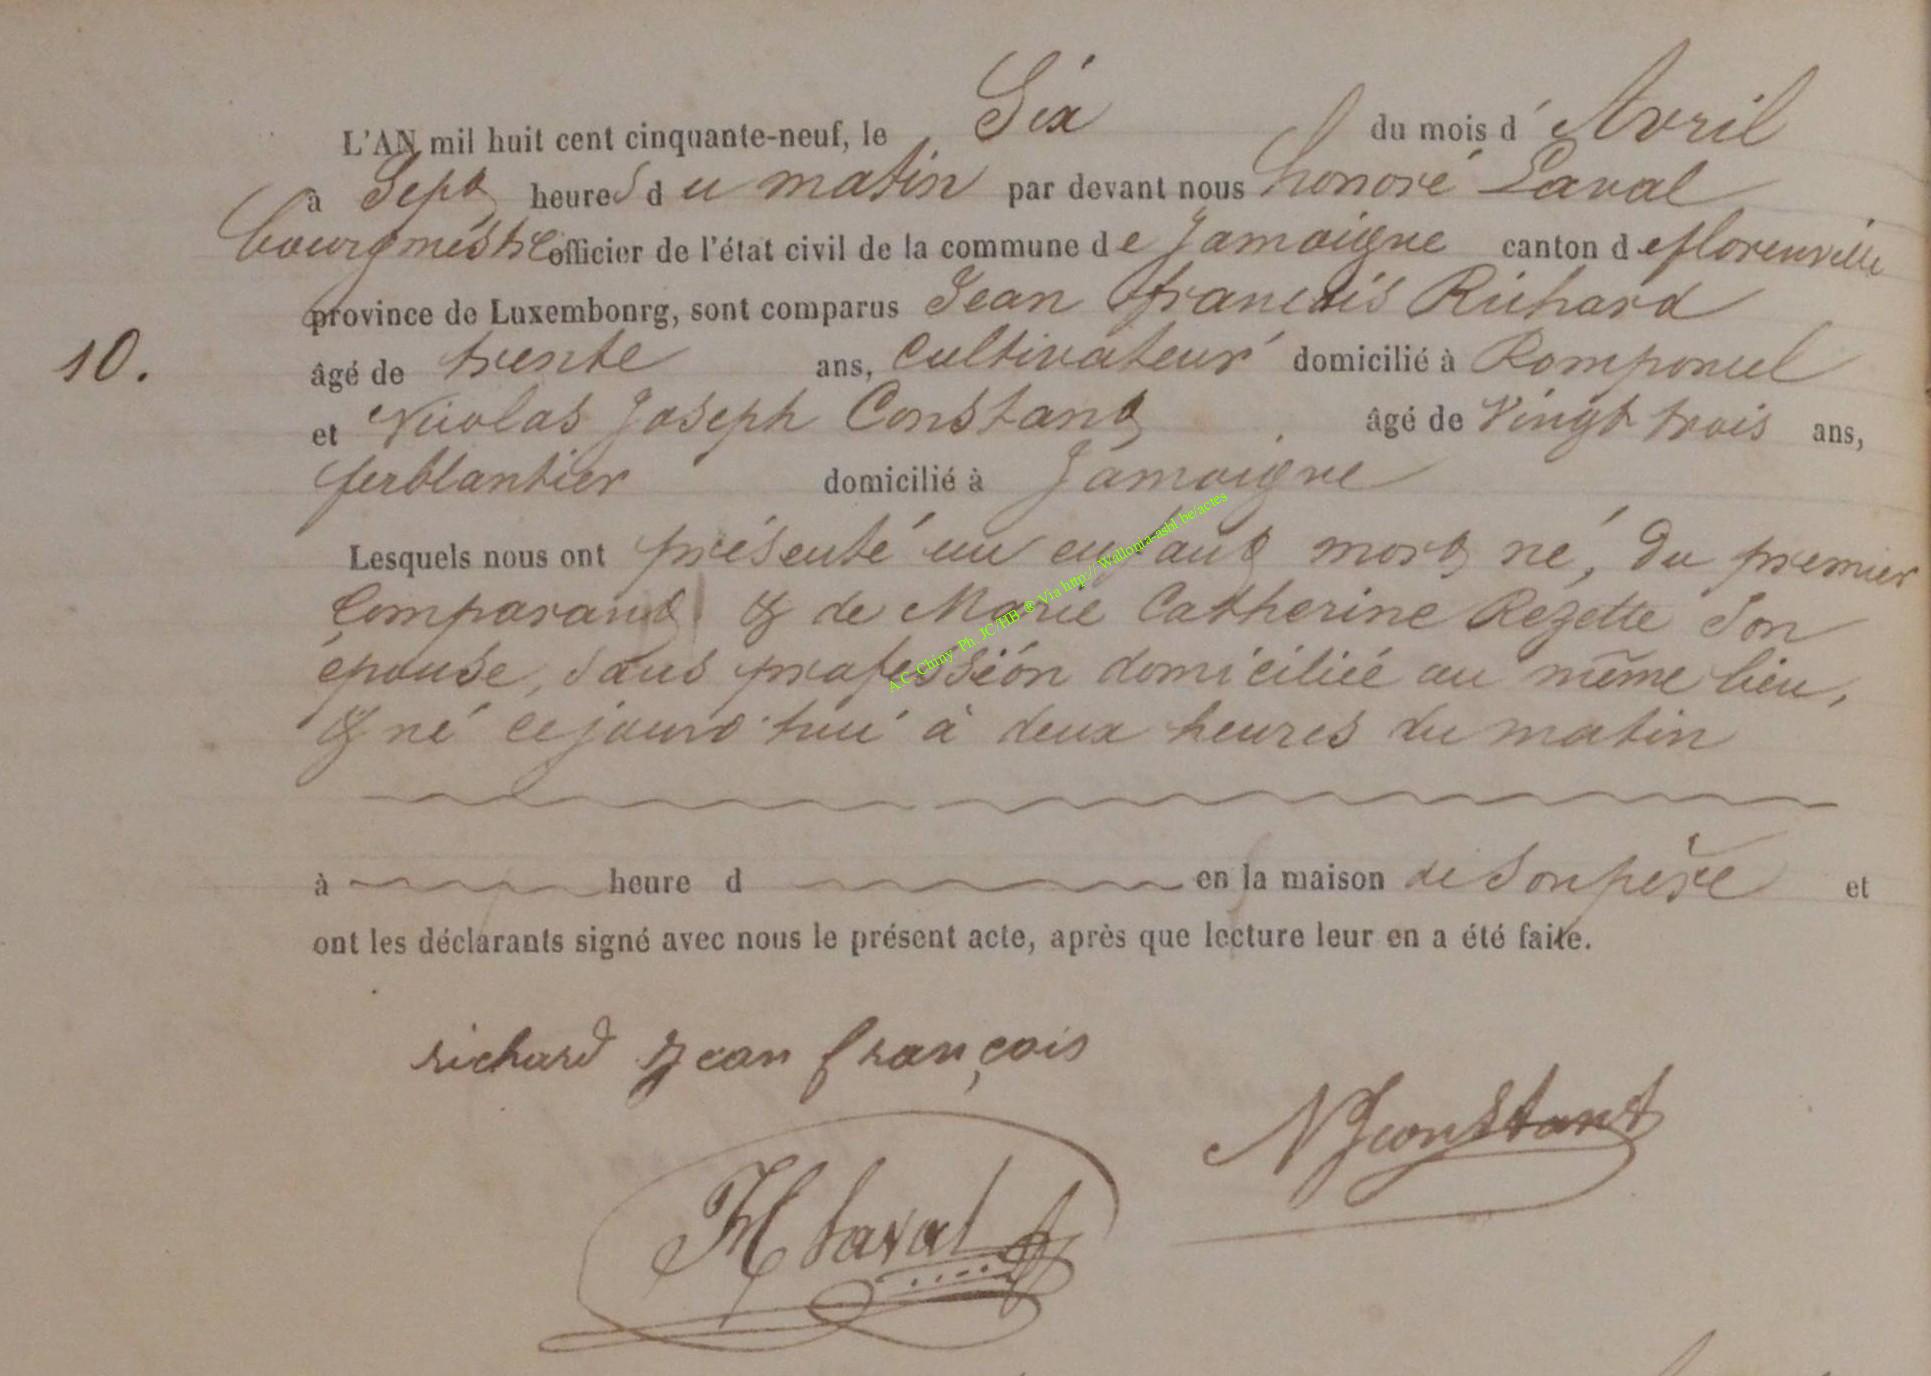 L'AN mil huit cent cinquante-neuf, le Six du mois d'Avril
à Sept heures du matin par devant nous honoré Laval
bourgmestre officier de l'état civil de la commune de Jamoigne canton de florenville
province de Luxembonrg, sont comparus Jean françois Richard
10. âgé de trente ans, Cultivateur domicilié à Romponcel
et Nicolas Joseph Constant âgé de Vingt trois ans,
ferblantier domicilié à Jamoigne
Lesquels nous ont présenté un enfant mort né, du premier
Comparant & de Marie Catherine Rezette Son
épouse, Sans profession domiciliée au même lieu,
& né cejourd'hui à deux heures du matin
à heure d en la maison de Son père et
ont les déclarants signé avec nous le présent acte, après que lecture leur en a été faite.
richard Jean françois
NJConstant
H Laval
A.C. Chiny Ph. JC/HB ® Via http://Wallonia-asbl.be/actes